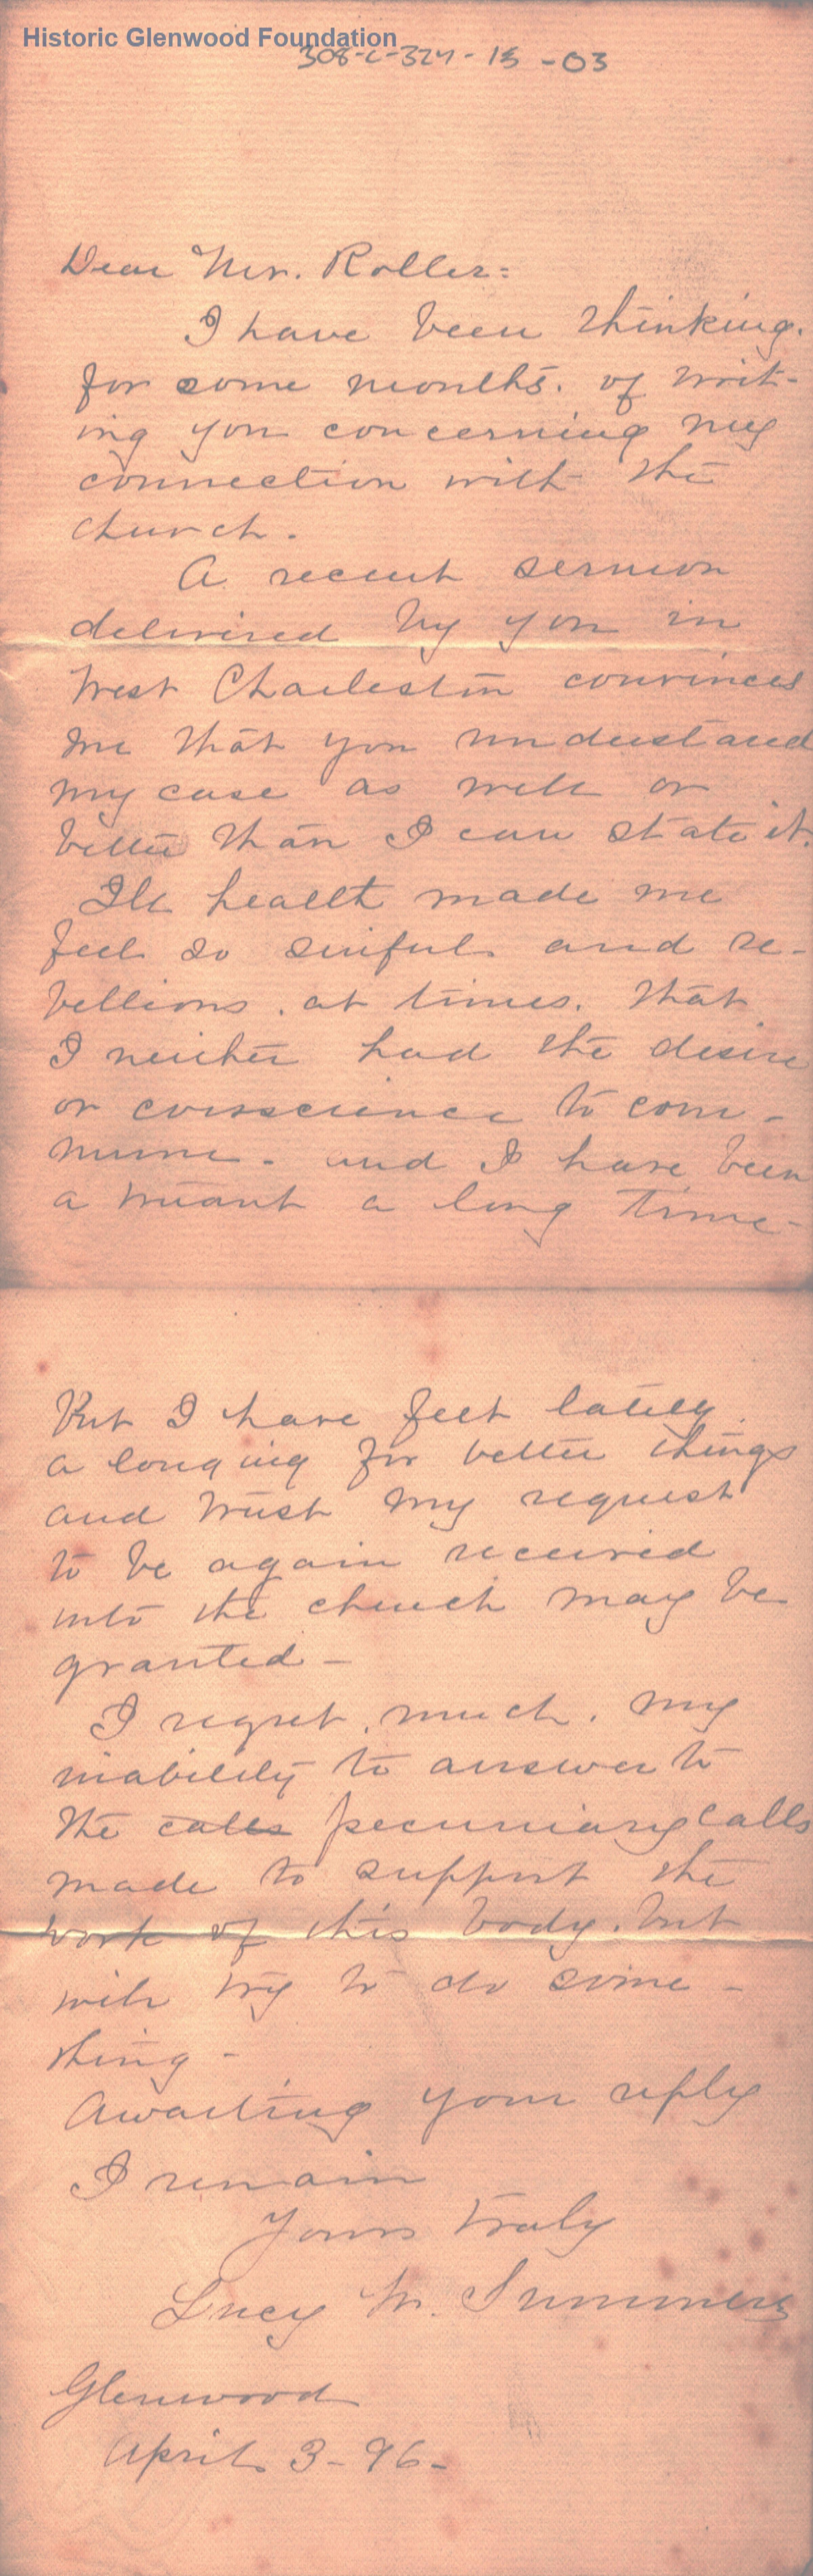 Historic Glenwood Foundation
308-C-324-15-03
Dear Mr. Roller:
I have been thinking.
for some months. of writ-
ing you concerning my
connection with the
church.
A recent sermon
delivered by you in
West Charleston convinces
me that you understand
my case as well or
better than I can state it.
Ill health made me
feel so sinful and re-
bellious. at times. that
I neither had the desire
or conscience to com-
mune - and I have been
a truant a long time-
But I have felt lately
a longing for better things
and trust my request
to be again received
into the church may be
granted -
I regret. much. my
inability to answer to
the calls pecuniary calls
made to support the
work of this body. but
will try to do some-
thing -
Awaiting your reply
I remain
Yours truly
Lucy M. Summers
Glenwood
April 3-96-